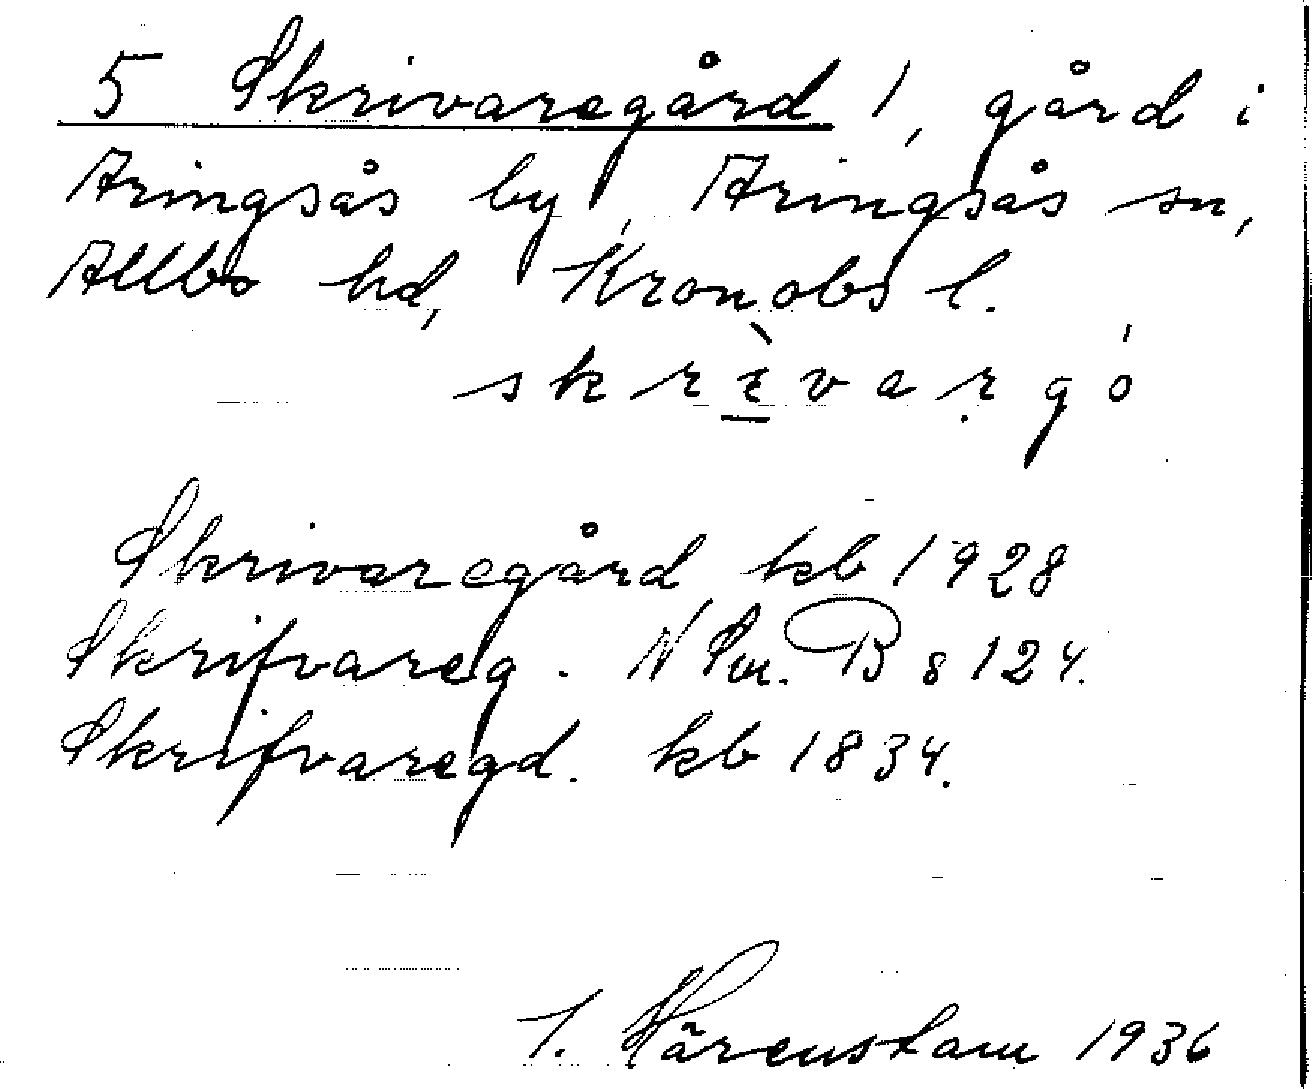 5 Skrivaregård 1, gård i
Aringsås by, Aringsås sn,
Allbo hd, Kronobs l.
skrìvargó
Skrivaregård kb 1928
Skrifvareg. N Sm. B s 124.
Skrifvaregd. kb 1834.
J. Härenstam 1936